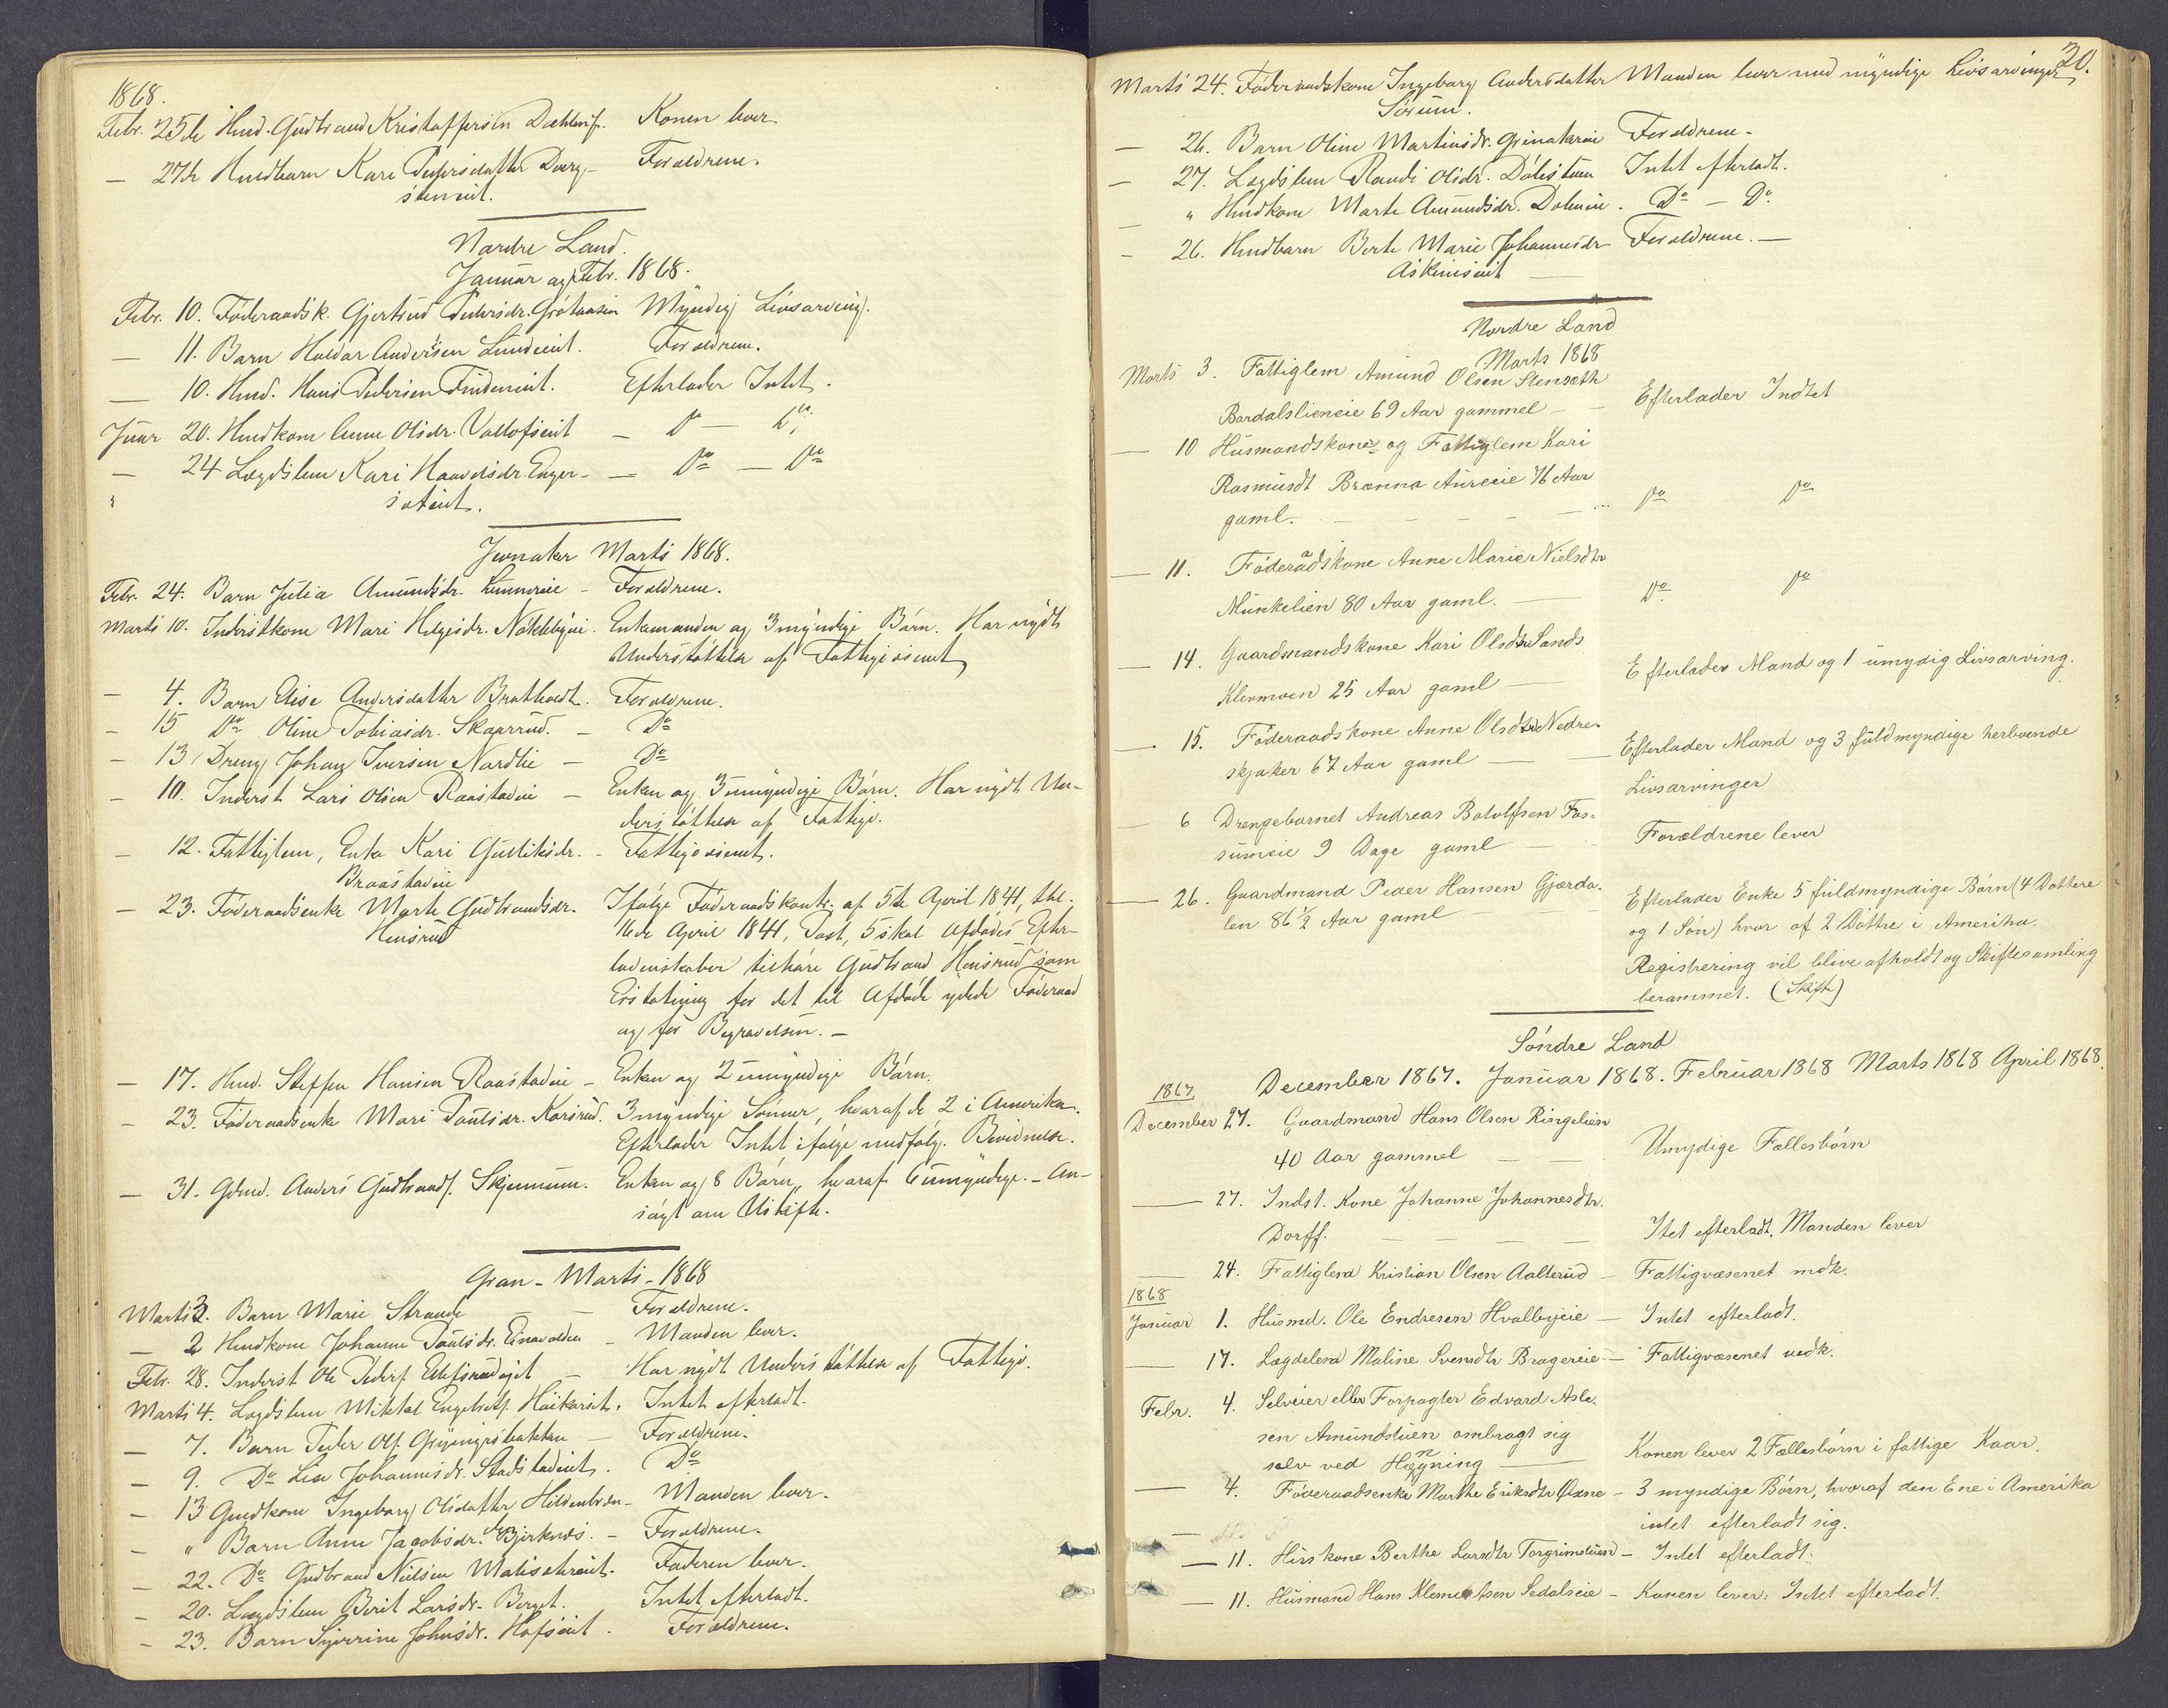 1868.
Febr. 25de Husd. Gudbrand Kristoffersen Konen lever
— 27de Husdbarn Kari Pedersdatter Dverg- Forældrene.
steneiet.
Nordre Land.
Januar og Febr. 1868.
Febr. 10. Föderaadsk. Gjertrud Pedersdr. Myndig Livsarving.
— 11. Barn Haldor Andersen Lundeiet. Forældrene.
— 10. Husd. Hans Pedersen Efterlader Intet.
Januar 20. Husdkone Anne Olsdr. — Do — Do
— 24 Lægdslem Kari Haavelsdr. Enger- — Do — Do
" sæteiet.
Jevnaker Marts 1868.
Febr. 24. Barn Julia Amundsdr. — Forældrene.
Marts 10. Inderstkone Mari Helgesdr. Nøklebyeie. Enkemanden og 3 myndige Börn. Har nydt
Understöttelse af Fattigvæsenet,
— 4. Barn Elise Andersdatter Bratvoldt. Forældrene.
— 15 Do Oline Tobiasdr. Skaarrud. — Do
— 13 Dreng Johan Iversen Nordlie — Do
— 10. Inderst Lars Olsen Raastadeie — Enken og 3 umyndige Börn. Har nydt Un-
derstöttelse af Fattigv.
— 12. Fattiglem, Enke Kari Gulliksdr. — Fattigvæsenet.
Braastadeie
— 23. Föderaadsenke Marte Gudbrandsdr. Ifölge Föderaadskontr. af 5te April 1841, thl.
Hensrud 16de April 1841, Post, 5 skal Afdödes Efter-
ladenskaber tilhöre Gudbrand Hensrud som
Erstatning for det til Afdöde ydede Föderaad
og for Begravelsen. —
— 17. Husd. Steffen Hansen Raastadeie — Enken og 2 umyndige Börn.
— 23. Föderaadsenke Mari Paulsdr. Karsrud. 3 myndige Sönner, hvoraf de 2 i Amerika.
Efterlader Intet ifölge medfölg. Bevidnelse.
— 31. Gdmd. Anders Gudbrands. Skjennum. Enken og 8 Börn, hvoraf 6 umyndige. — An-
sögt om Uskifte.
Gran — Marts — 1868
Marts 3. Barn Marie Strande — — Forældrene.
— 2 Husdkone Johanne Paulsdr. Einavolden — Manden lever.
Febr. 28. Inderst Ole Peders. — Har nydt Understöttelse af Fattigv.
Marts 4. Lægdslem Mikkel Engebrets. Intet efterladt.
— 7. Barn Peder Ols. — Forældrene.
— 9. Do Lise Johannesdr. Do
— 13 Gmdkone Ingeborg Olsdatter Manden lever.
— " Barn Anne Jacobsdr. Bjerknes. — Forældrene.
— 22. Do Gudbrand Nielsen Faderen lever.
— 20. Lægdslem Berit Larsdr. Berget. Intet efterladt.
— 23. Barn Syverine Johnsdr. Hofseiet. Forældrene.
30.
Marts 24. Föderaadskone Ingeborg Andersdatter Manden lever med myndige Livsarvinger
Sörum.
— 26. Barn Oline Martinsdr. Grinakereie Forældrene.
— 27. Lægdslem Randi Olsdr. Dölistuen Intet efterladt.
— " Husdkone Marte Amundsdr. Do — Do
— 26. Husdbarn Berte Marie Johannesdr Forældrene. —
Askimseiet —
Nordre Land
Marts 1868
Marts 3. Fattiglem Amund Olsen Stensæth
Bardalslieneie 69 Aar gammel — Efterlader Indtet
— 10 Husmandskone og Fattiglem Kari
Rasmusdt Brænna 76 Aar
gaml. — — — — — Do Do
— 11. Föderaadskone Anne Marie Nielsdtr
Munkelien 80 Aar gaml. — Do Do
— 14. Gaardmandskone Kari Olsdtr Sands
Klevmoen 25 Aar gaml — Efterlader Mand og 1 umydig Livsarving.
— 15. Föderaadskone Anne Olsdtr Nedre-
skjaker 67 Aar gaml — — Efterlader Mand og 3 fuldmyndige herboende
Livsarvinger
— 6 Drengebarnet Andreas Botolfsen Fos-
sumeie 9 Dage gaml — Forældrene lever
— 26. Gaardmand Peder Hansen Gjærda-
len 86 1/2 Aar gaml — Efterlader Enke 5 fuldmyndige Börn (4 Dottere
og 1 Sön) hvor af 2 Döttre i Amerika.
Registrering vil blive afholdt og Skiftesamling
berammet. (Skifte)
Söndre Land
December 1867. Januar 1868. Februar 1868 Marts 1868 April 1868.
1867
December 27. Gaardmand Hans Olsen Ringelien
40 Aar gammel — — Umydige Fællesbörn
— 27. Indst. Kone Johanne Johannesdtr.
Dorff. — — — — Itet efterladt, Manden lever
— 24. Fattiglem Kristian Olsen Aalterud — Fattigvæsenet mdk.
1868
Januar 1. Husmd. Ole Endresen Hvalbyeie — Intet efterladt.
— 17. Lægdelem Maline Svensdtr Bragereie — Fattigvæsenet vedk.
Febr. 4. Selveier eller Forpagter Edvard Asle-
sen Amundstuen ombragt sig
selv ved Hængning — Konen lever 2 Fællesbörn i fattige Kaar.
— 4. Föderaadsenke Marthe Eriksdtr Oxne — 3 myndige Börn, hvoraf den Ene i Amerika
— intet efterladt sig.
— 11. Huskone Berthe Larsdtr Torgrimstuen — Intet efterladt.
— 11. Husmand Hans Klemetsen Sedalseie — Konen lever: Intet efterladt.